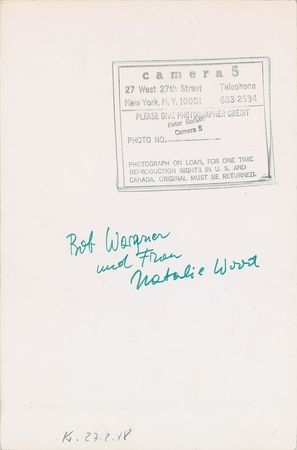 camera 5
27 West 27th Street Telephone
New York, N.Y. 10001 683-2594
PLEASE GIVE PHOTOGRAPHER CREDIT
Peter Borsari
Camera 5
PHOTO NO.
PHOTOGRAPH ON LOAN, FOR ONE TIME
REPRODUCTION RIGHTS IN U. S. AND
CANADA. ORIGINAL MUST BE RETURNED.
Bob Wargner
und Frau
Natalie Wood
Kr. 27.2.78